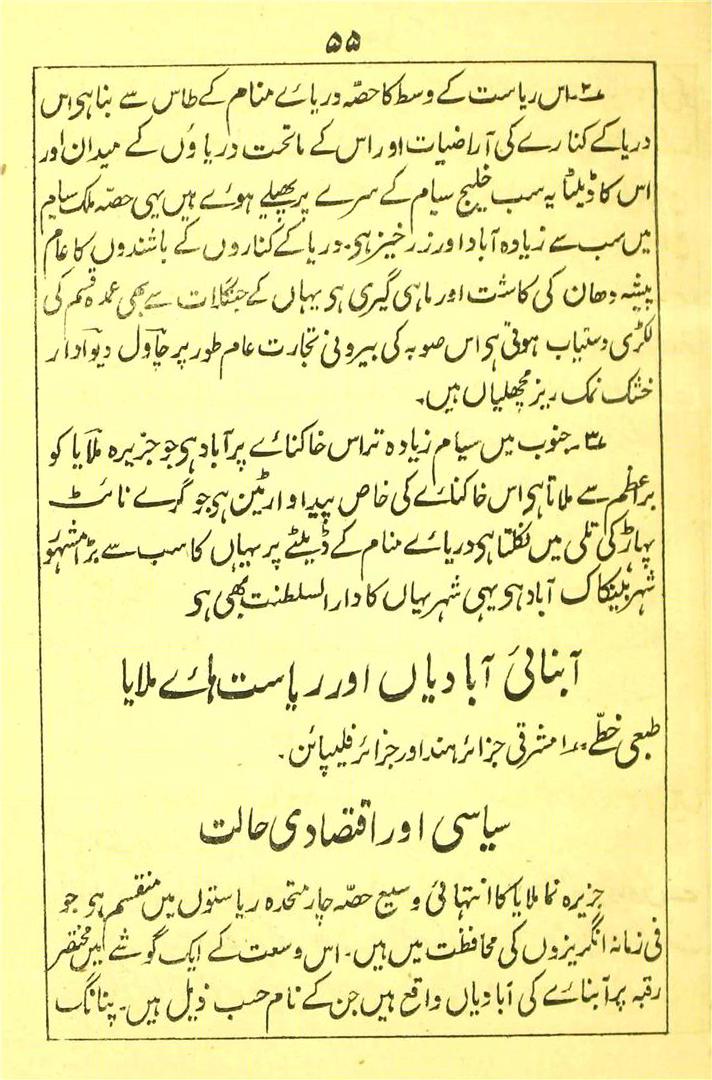 ۵۵
۲۔ اس ریاست کے وسط کا حصّہ دریائے منام کے طاس سے بنا ہی اس
دریا کے کنارے کی آراضیات اور اس کے ماتحت دریاؤں کے میدان اور
اس کا ڈیلٹا یہ سب خلیج سیام کے سرے پر پھیلے ہوئے ہیں یہی حصّہ ملک سیام
میں سب سے زیادہ آباد اور زرخیز ہی۔ دریا کے کناروں کے باشندوں کا عام
پیشہ دھان کی کاشت اور ماہی گیری ہی یہاں کے جنگلات سے بھی عمدہ قسم کی
لکڑی دستیاب ہوتی ہی اس صوبہ کی بیرونی تجارت عام طور پر چاول دیوادار
خشک نمک ریز مچھلیاں ہیں۔
۳۔ جنوب میں سیام زیادہ تر اس خاکنائے پر آباد ہی جو جزیرہ ملایا کو
براعظم سے ملاتا ہی اس خاکنائے کی خاص پیداوار ٹین ہی جو گرے نائٹ
پہاڑ کی تلی میں نکلتا ہی دریائے منام کے ڈیلٹے پر یہاں کا سب سے بڑا مشہور
شہر بینکاک آباد ہی یہی شہر یہاں کا دارالسلطنت بھی ہی
آبنائی آبادیاں اور ریاست ہائے ملایا
طبعی خطّے۔ ۱۔ مشرقی جزائر ہند اور جزائر فلیپائن۔
سیاسی اور اقتصادی حالت
جزیرہ نما ملایا کا انتہائی وسیع حصّہ چار متحدہ ریاستوں میں منقسم ہی جو
فی زمانہ انگریزوں کی محافظت میں ہیں۔ اس وسعت کے ایک گوشے میں مختصر
رقبہ پر آبنائے کی آبادیاں واقع ہیں جن کے نام حسب ذیل ہیں۔ پنانگ